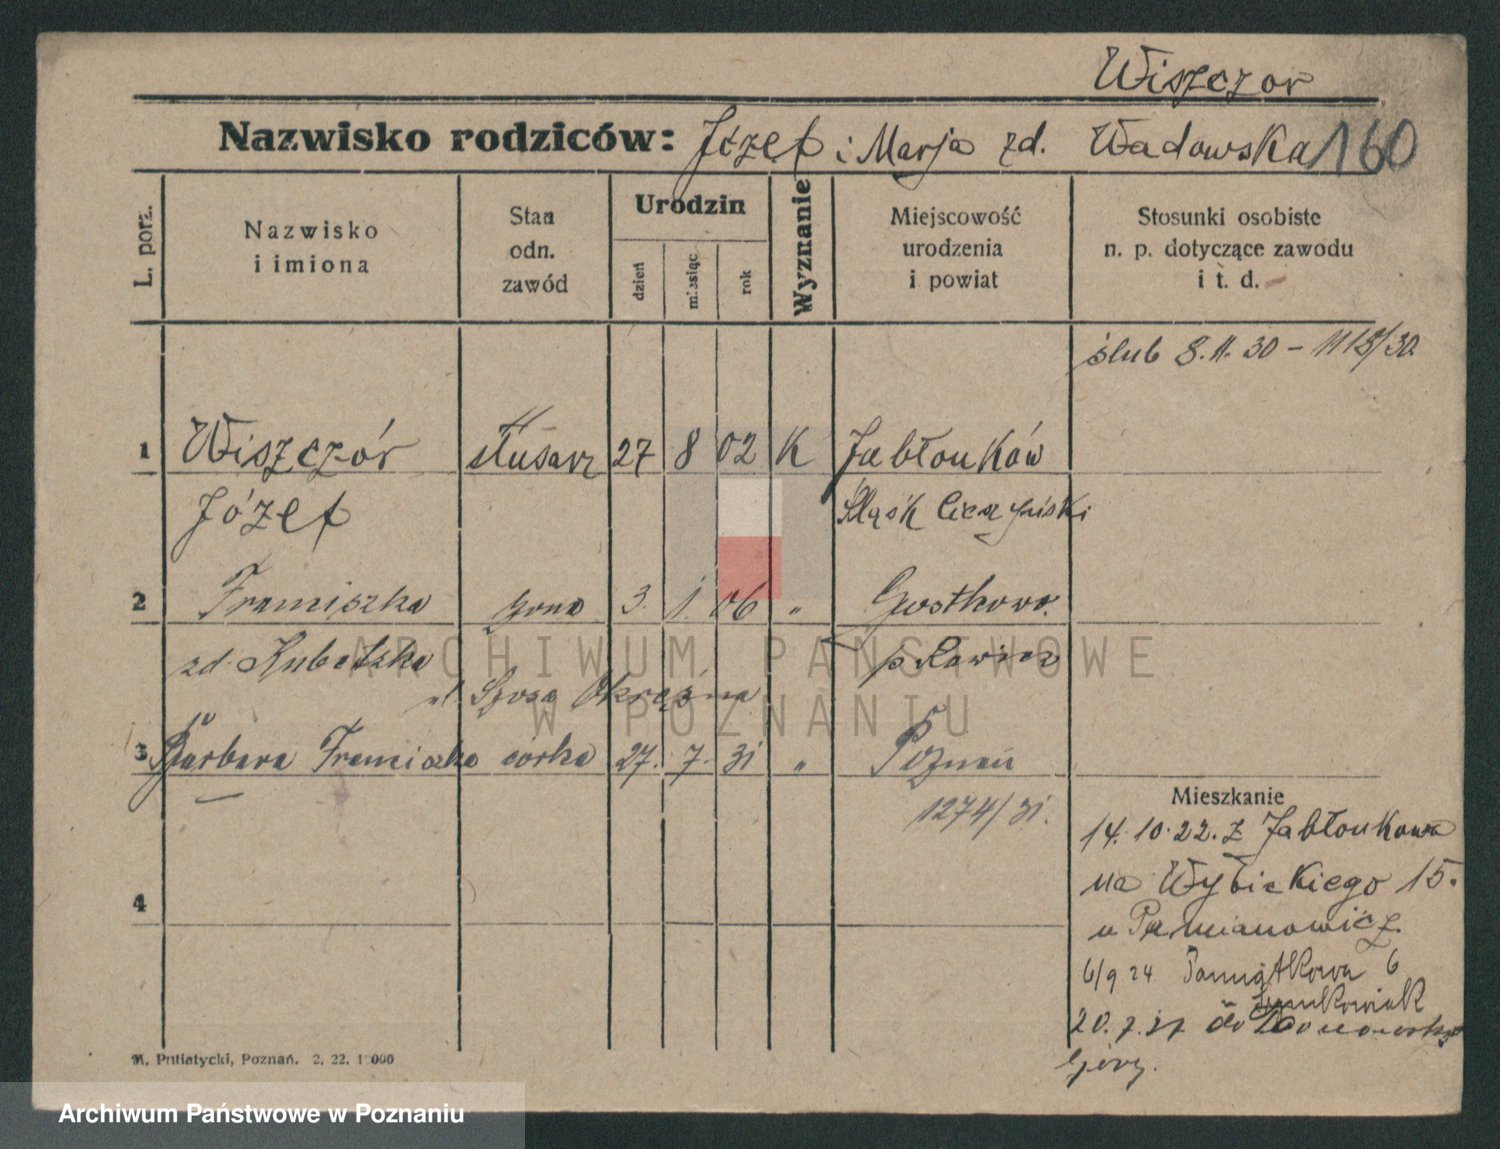 Wiszczor
Nazwisko rodziców: Józef i Marja zd. Wadowska 160
L. porz.
Nazwisko
i imiona
Stan
odn.
zawód
Urodzin
dzień
miesiąc
rok
Wyznanie
Miejscowość
urodzenia
i powiat
Stosunki osobiste
n. p. dotyczące zawodu
i t. d.
ślub 8.11.30 -
1 Wiszczór ślusarz 27 8 02 K Jabłonków
Józef Śląsk Cieszyński
2 Franciszka żona 3. 1. 06 " Gostkowo.
zd. Kubetzka p Rawicz
ul. Szosa Okrężna
3 Barbara Franciszka córka 27. 7. 31 " Poznań
1274/31.
Mieszkanie
14.10.22. z Jabłonkowa
na Wybickiego 15.
4
u
6/9 24 6
20.7.27 do
Góry.
M. Putiatycki, Poznań. 2. 22. 1 000
ARCHIWUM PAŃSTWOWE
W POZNANIU
Archiwum Państwowe w Poznaniu